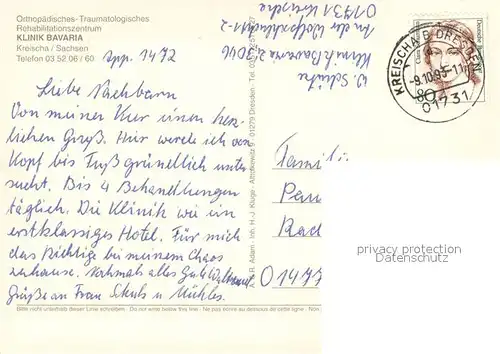 Orthopädisches-Traumatologisches
Rehabilitationszentrum
KLINIK BAVARIA
Kreischa / Sachsen
Telefon 03 52 06 / 60
App. 1472
Liebe Nachbarn
Von meiner Kur einen herz-
lichen Gruß. Hier werde ich von
Kopf bis Fuß gründlich unter
sucht. Bis 4 Behandlungen
täglich. Die Klinik wie ein
erstklassiges Hotel. Für mich
das Richtige bei meinem Chaos
zuhause. Nochmals alles Gute
Grüße an Frau u.
Bitte nicht unterhalb dieser Linie schreiben · Do not write below this line · Ne pas écrire au dessous de cette ligne
A. & R. Adam - Inh. H.-J. Kluge - Altlockwitz 9 - 01279 Dresden - Tel.
W. Schütz
Klinik Bavaria
An der Wolfsschlucht 1-2
01731 Kreischa
KREISCHA B DRESDEN
-9.10.95-11
01731
80
Deutsche Bundespost
Famili
Pau
Rad
01477
privacy protection
Datenschutz